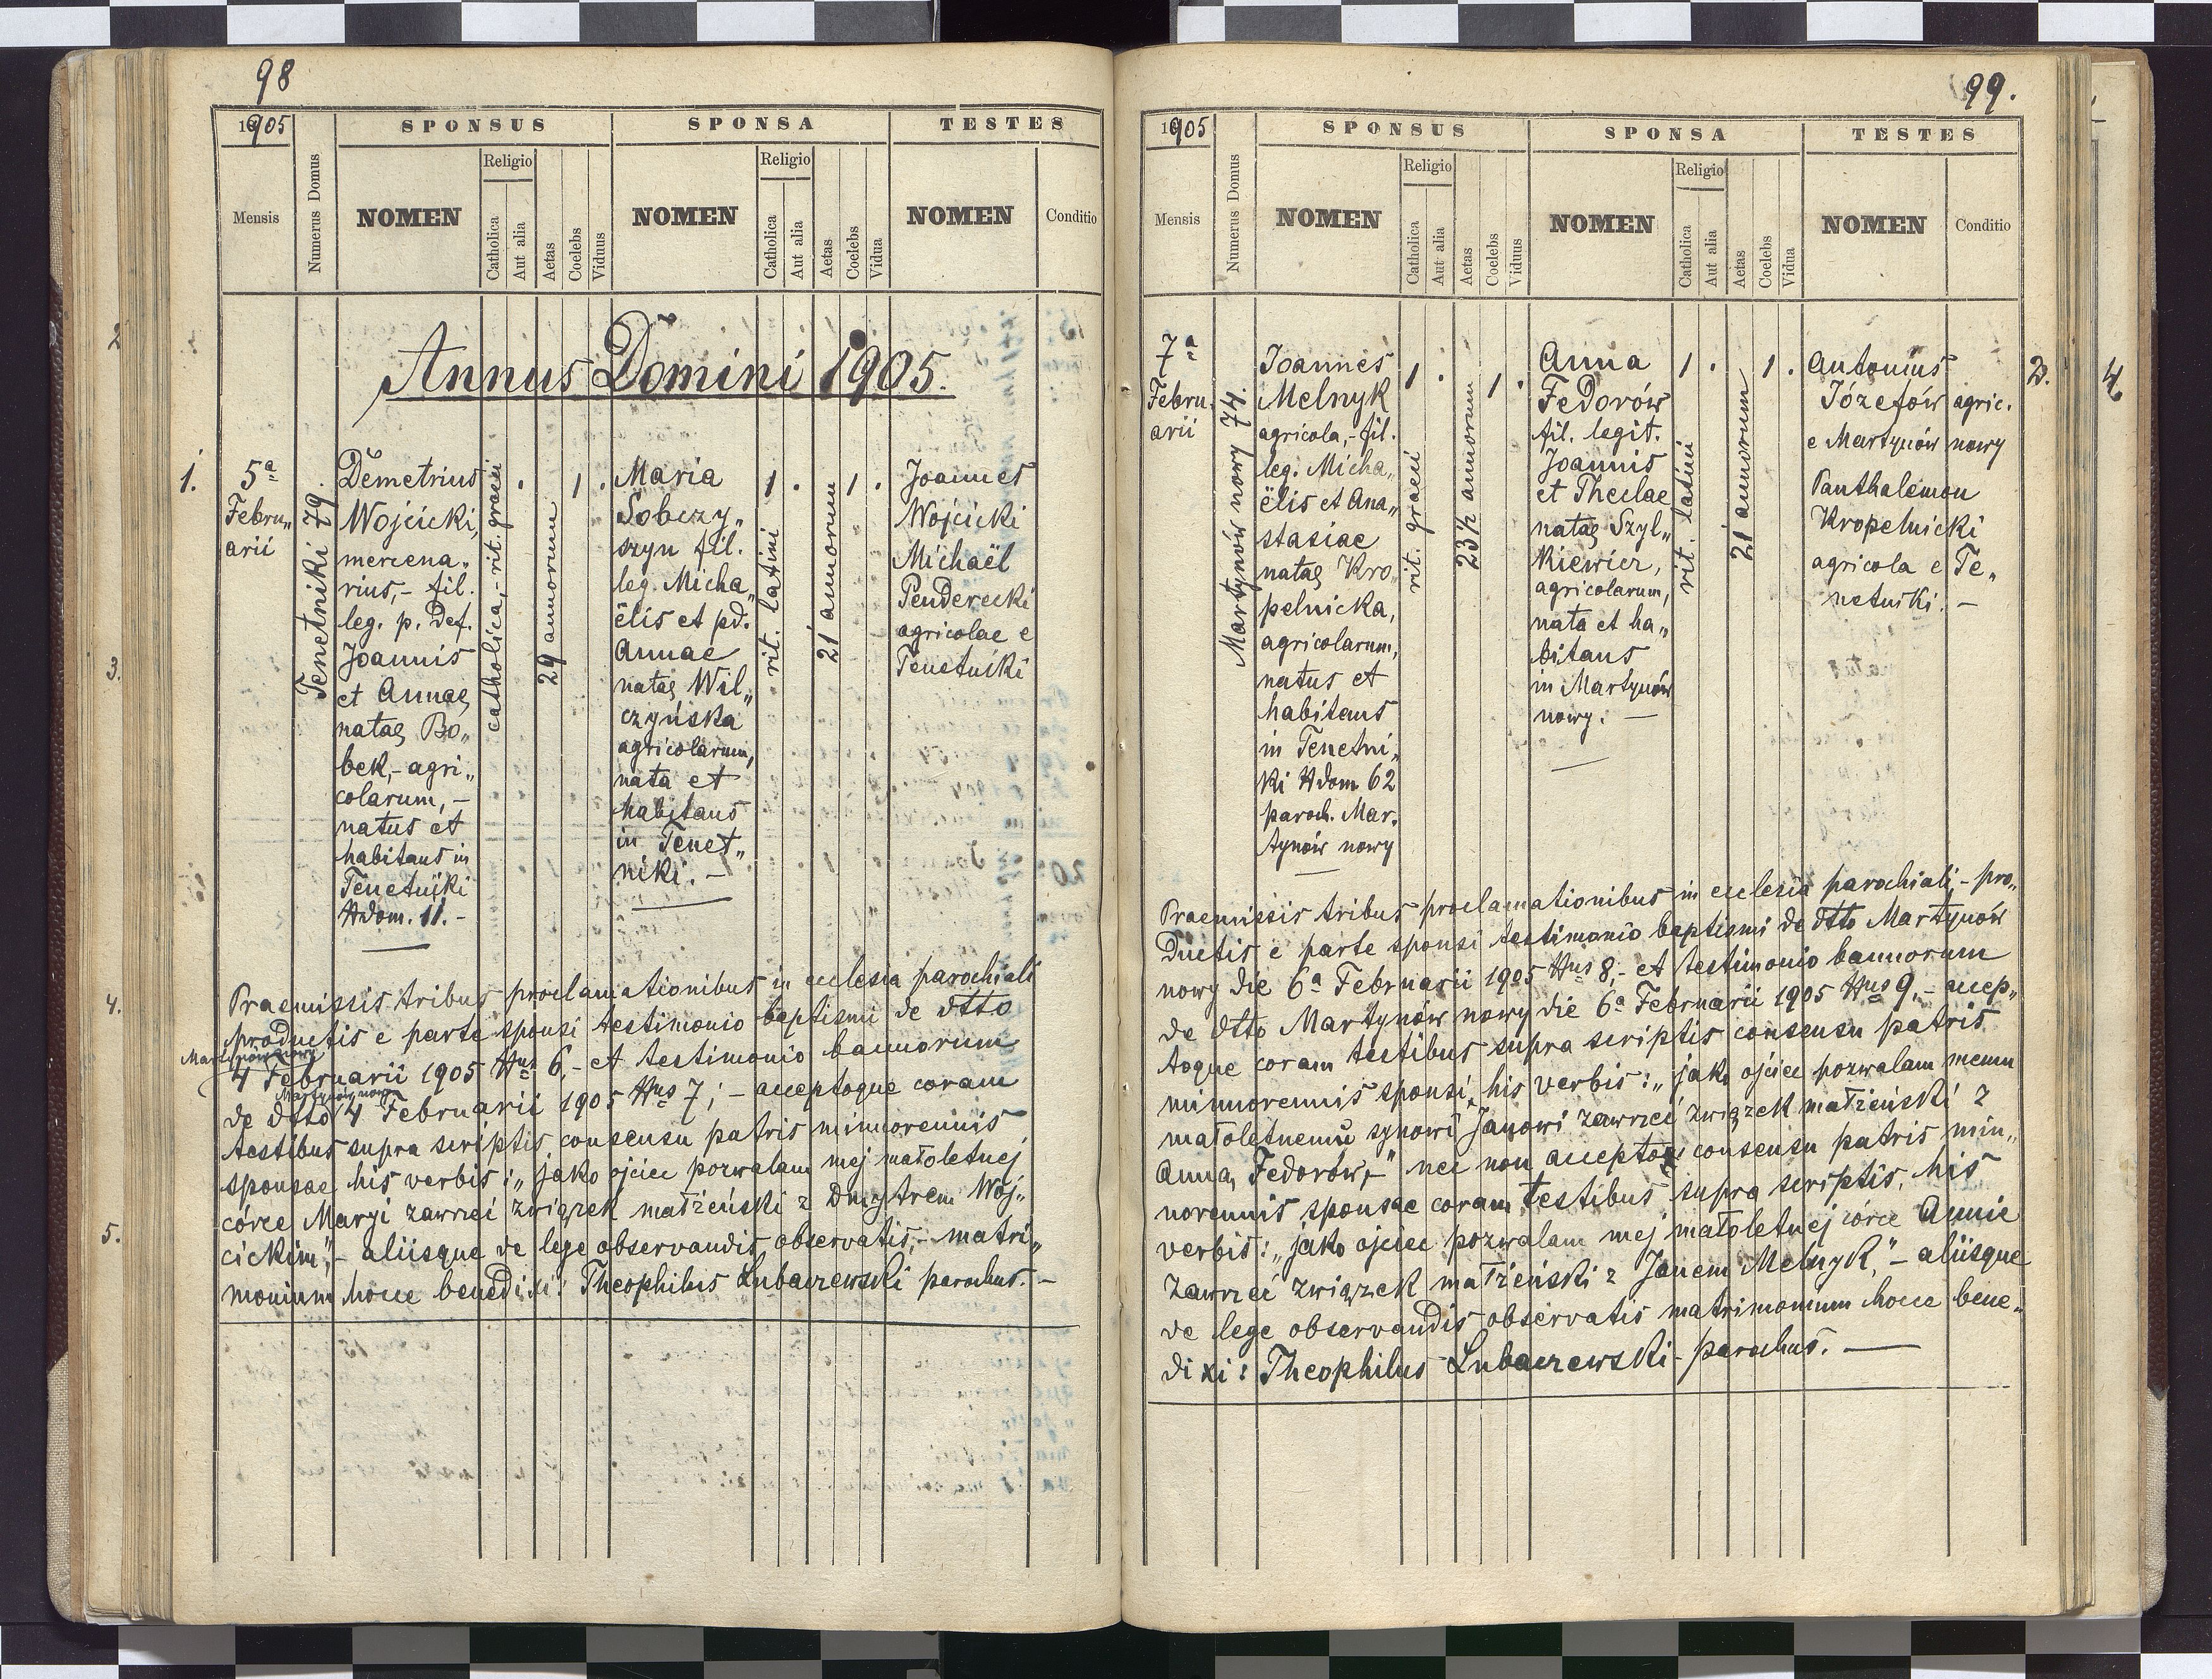 98
1905
SPONSUS
SPONSA
TESTES
Mensis
Numerus Domus
NOMEN
Religio
Catholica
Aut alia
Aetas
Coelebs
Viduus
NOMEN
Religio
Catholica
Aut alia
Aetas
Coelebs
Vidua
NOMEN
Conditio
Annus Domini 1905.
1.
5ª
Febru„
arii
Tenetniki 79.
Demetrius
Wojcicki,
mercena„
rius,- fil.
leg. p. def.
Joannis
et Annae
natae Bo„
bek,- agri„
colarum,-
natus et
habitans in
Tenetniki
Ndom. 11.-
catholica,- rit. graeci
.
29 annorum
1 .
Maria
Sobczy„
szyn fil.
leg. Micha„
ëlis et pd.
Annae
natae Wil„
czyńska
agricolarum,
nata et
habitans
in Tenet„
niki.-
1 .
rit. latini
21 annorum
1 .
Joannes
Wojcicki
Michaël
Penderecki
agricolae e
Tenetniki
Praemissis tribus proclamationibus in ecclesia parochiali
productis e parte sponsi testimonio baptismi de dtto
Martynów nowy
4 Februarii 1905 Nus 6,- et testimonio bannorum
Martynów nowy
de dtto 4 Februarii 1905 Nus 7;- acceptoque coram
testibus supra scriptis consensu patris minnorennis
sponsae his verbis: „jako ojciec pozwalam mej małoletnej
córce Maryi zawrzeć związek małżeński z Dmytrem Woj„
cickim",- aliisque de lege observandis observatis,- matri„
monium hocce benedixi: Theophilus Lubaczewski parochus.-
2
3.
4.
5.
99.
1905
SPONSUS
SPONSA
TESTES
Mensis
Numerus Domus
NOMEN
Religio
Catholica
Aut alia
Aetas
Coelebs
Viduus
NOMEN
Religio
Catholica
Aut alia
Aetas
Coelebs
Vidua
NOMEN
Conditio
7ª
Febru„
arii
Martynów nowy 74.
Joannes
Melnyk
agricola,- fil.
leg. Micha„
ëlis et Ana„
stasiae
natae Kro„
pelnicka,
agricolarum,
natus et
habitans
in Tenetni„
ki Ndom. 62
paroch. Mar„
tynów nowy
1 .
rit. graeci
23½ annorum
1 .
Anna
Fedorów
fil. legit.
Joannis
et Theclae
natae Szyl„
kiewicz,
agricolarum,
nata et ha„
bitans
in Martynów
nowy. -
1 .
rit. latini
21 annorum
1 .
Antonius
Józefów agric.
e Martynów nowy
Panthalemon
Kropelnicki
agricola e Te„
netniki. -
2.
4.
Praemissis tribus proclamationibus in ecclesia parochiali,- pro„
ductis e parte sponsi testimonio baptismi de dtto Martynów
nowy die 6ª Februarii 1905 Nus 8,- et testimonio bannorum
de dtto Martynów nowy die 6ª Februarii 1905 Nus 9,- accep„
toque coram testibus supra scriptis consensu patris
minnorennis sponsi, his verbis: „jako ojciec pozwalam memu
małoletnemu synowi Janowi zawrzeć związek małżeński z
Anną Fedorów,-" nec non accepto consensu patris min„
norennis sponsae coram testibus supra scriptis, his
verbis: „jako ojciec pozwalam mej małoletnej córce Annie
zawrzeć związek małżeński z Janem Melnyk,"- aliisque
de lege observandis observatis matrimonium hocce bene„
dixi: Theophilus Lubaczewski- parochus. -